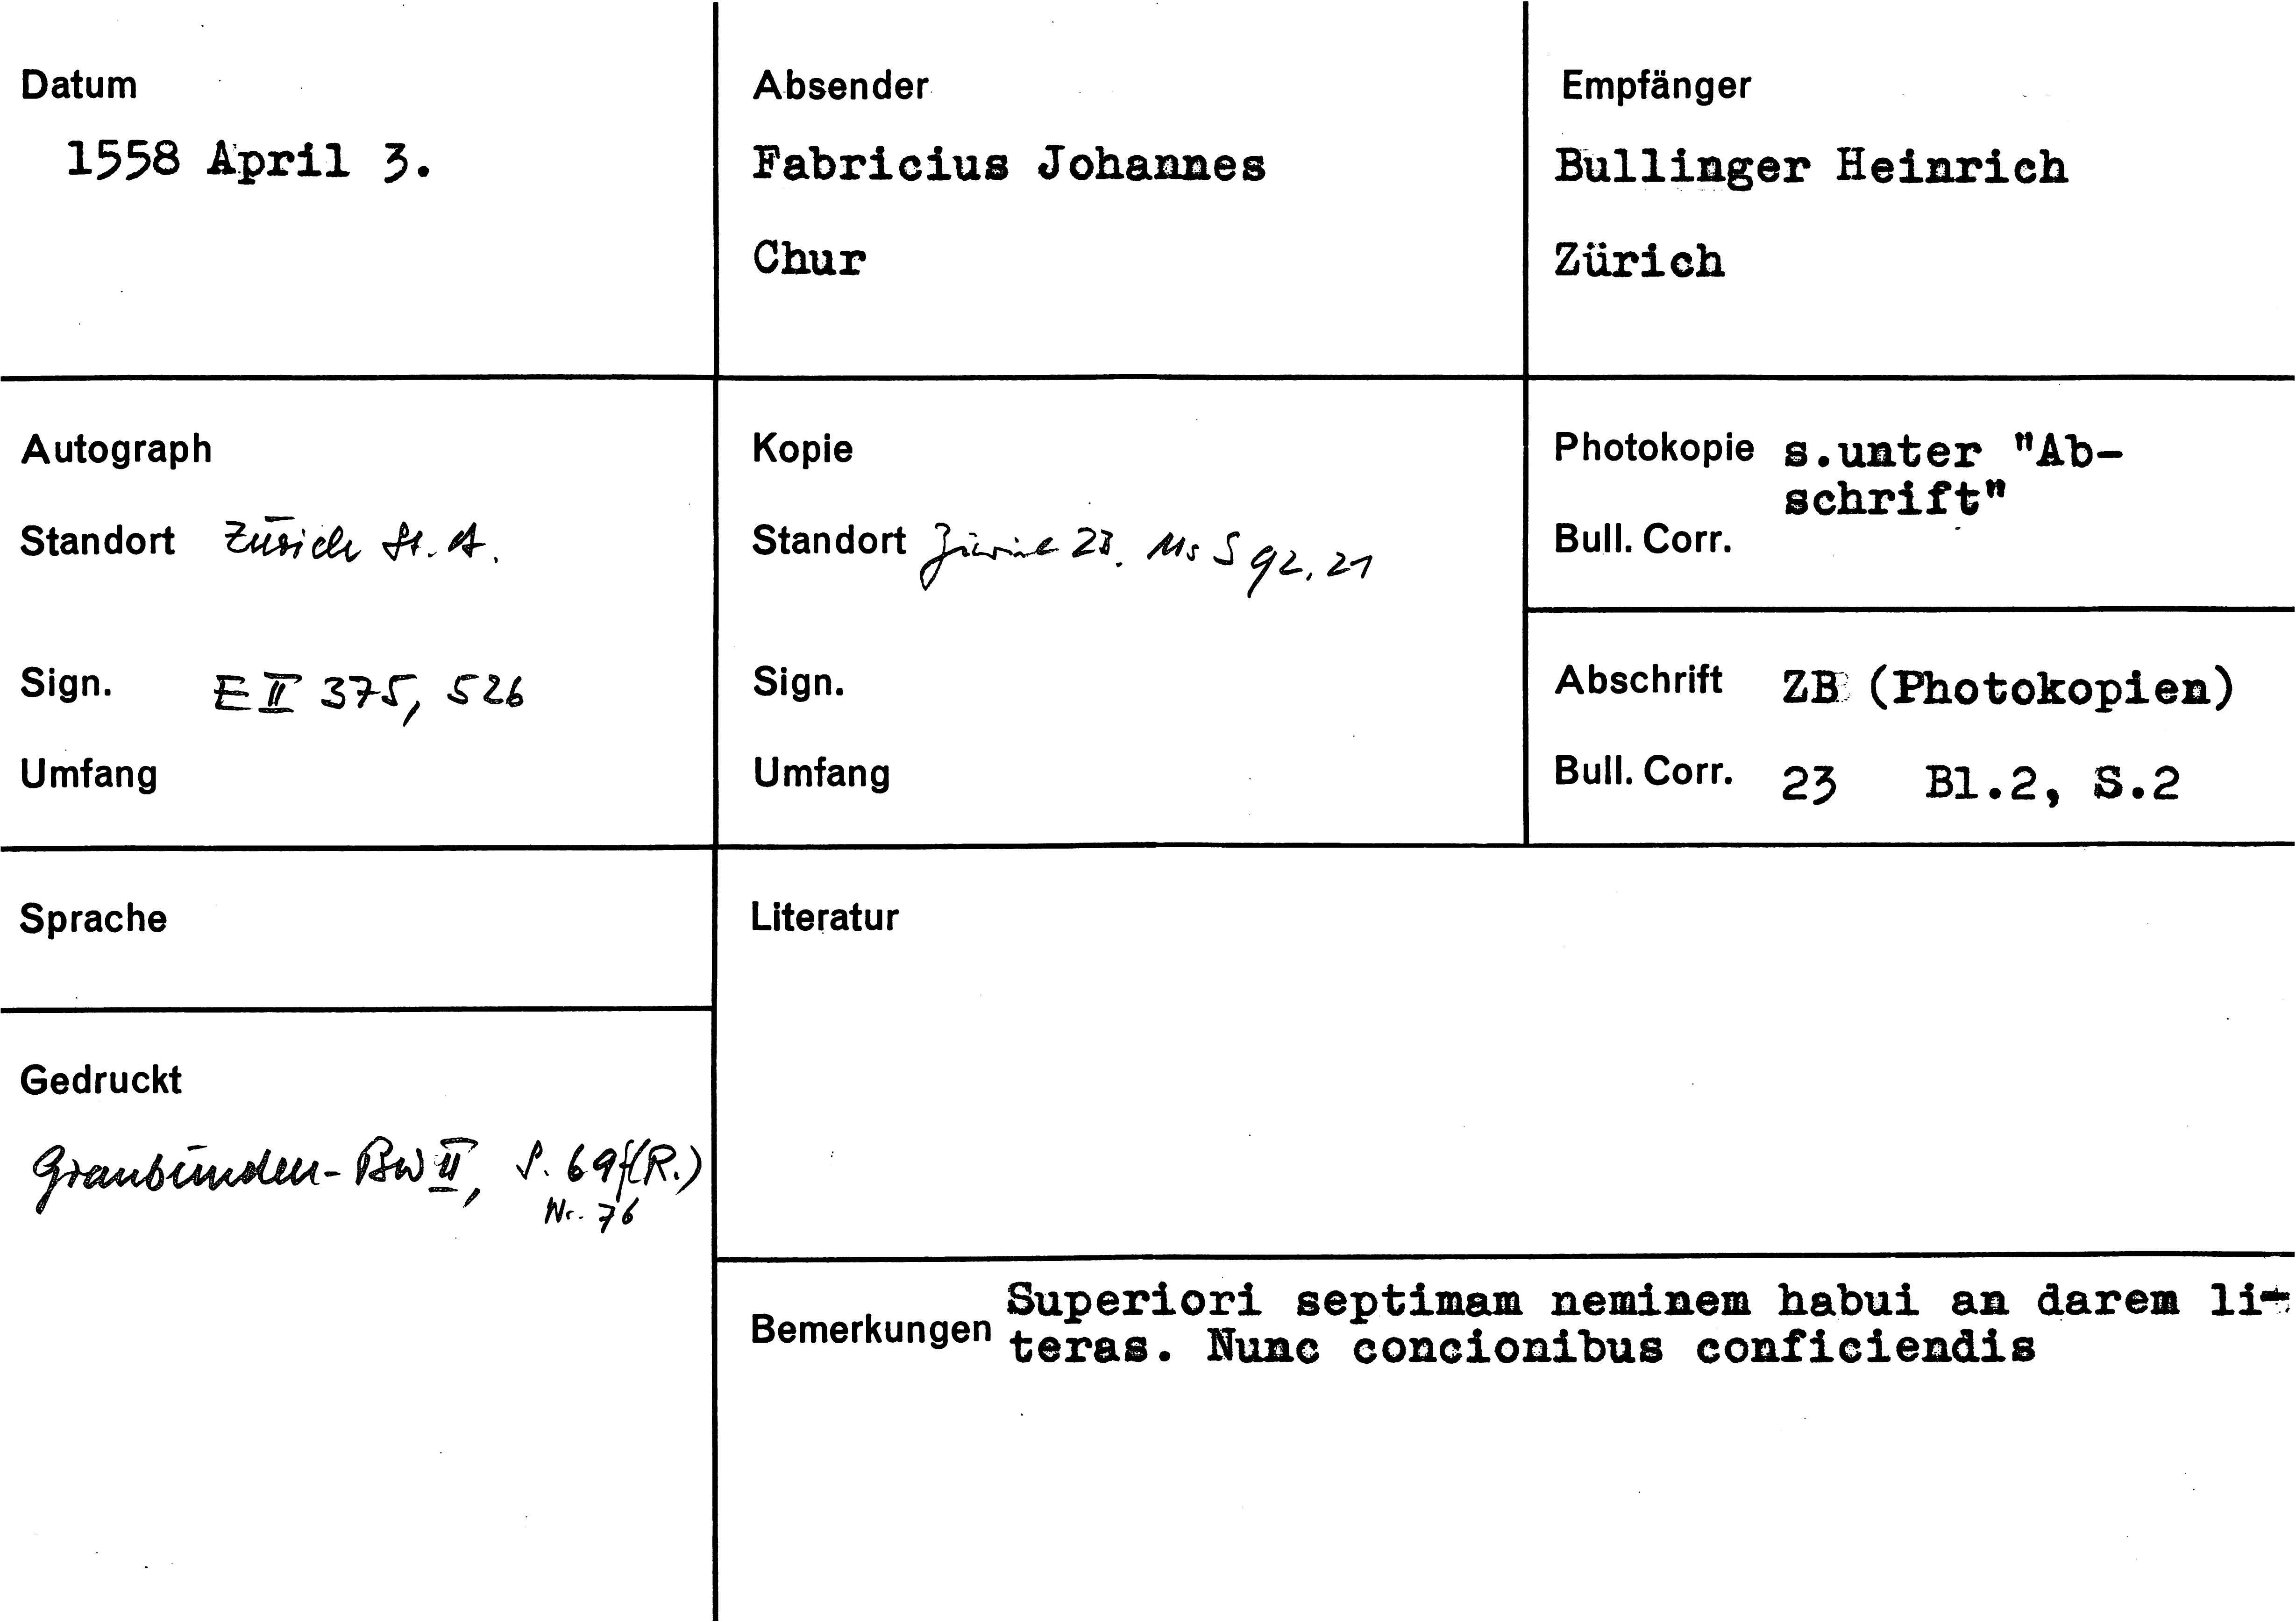 Datum
1558 April 3.
Absender
Fabricius Johannes
Chur
Empfänger
Bullinger Heinrich
Zürich
Autograph
Standort Zürich St. A.
Sign. E II 375, 526
Umfang
Kopie
Standort Zürich ZB. Ms S 92, 21
Sign.
Umfang
Photokopie s.unter "Ab-
schrift"
Bull. Corr.
Abschrift ZB (Photokopien)
Bull. Corr. 23 Bl.2, S.2
Sprache
Gedruckt
Graubünden-BW II, S. 69f(R.)
Nr. 76
Literatur
Bemerkungen
Superiori septimam neminem habui an darem li-
teras. Nunc concionibus conficiendis